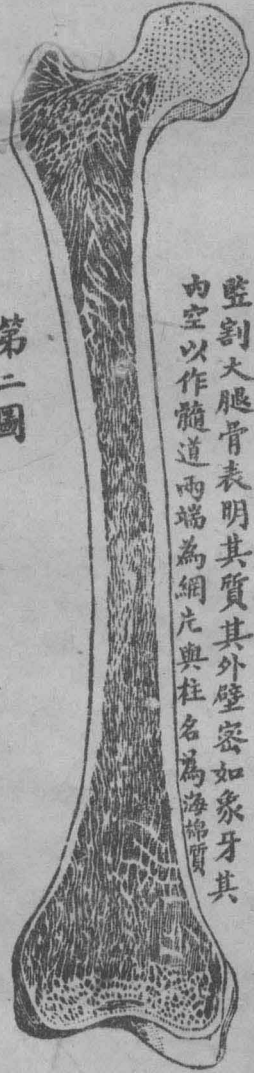 監割大腿骨表明其質其外壁密如象牙其
內空以作髓道兩端為網片與柱名為海棉質
第二圖